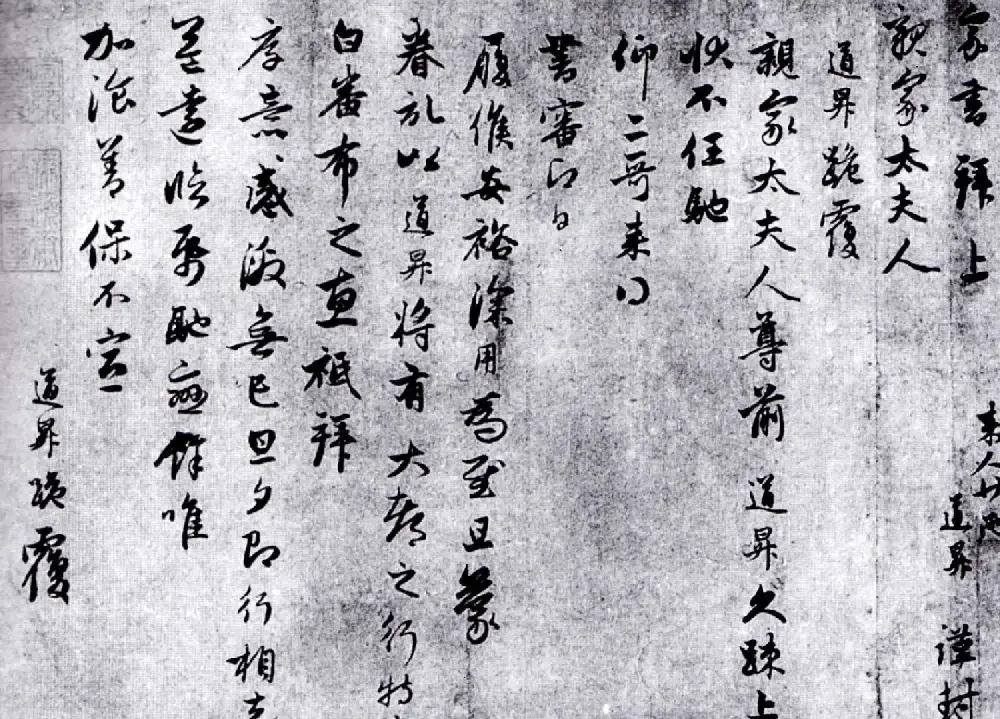 家書拜上
親家太夫人
來人
道昇 謹封
道昇跪覆
親家太夫人尊前道昇久疎上
狀不任馳
仰二哥來得
書審即日
履候安裕深用為慰且蒙
眷記以道昇將有大都之行特
白番布之惠祗拜
厚意感激無已旦夕即行相去
益遠臨紙馳戀餘唯
加飡善保不宣
道昇跪覆